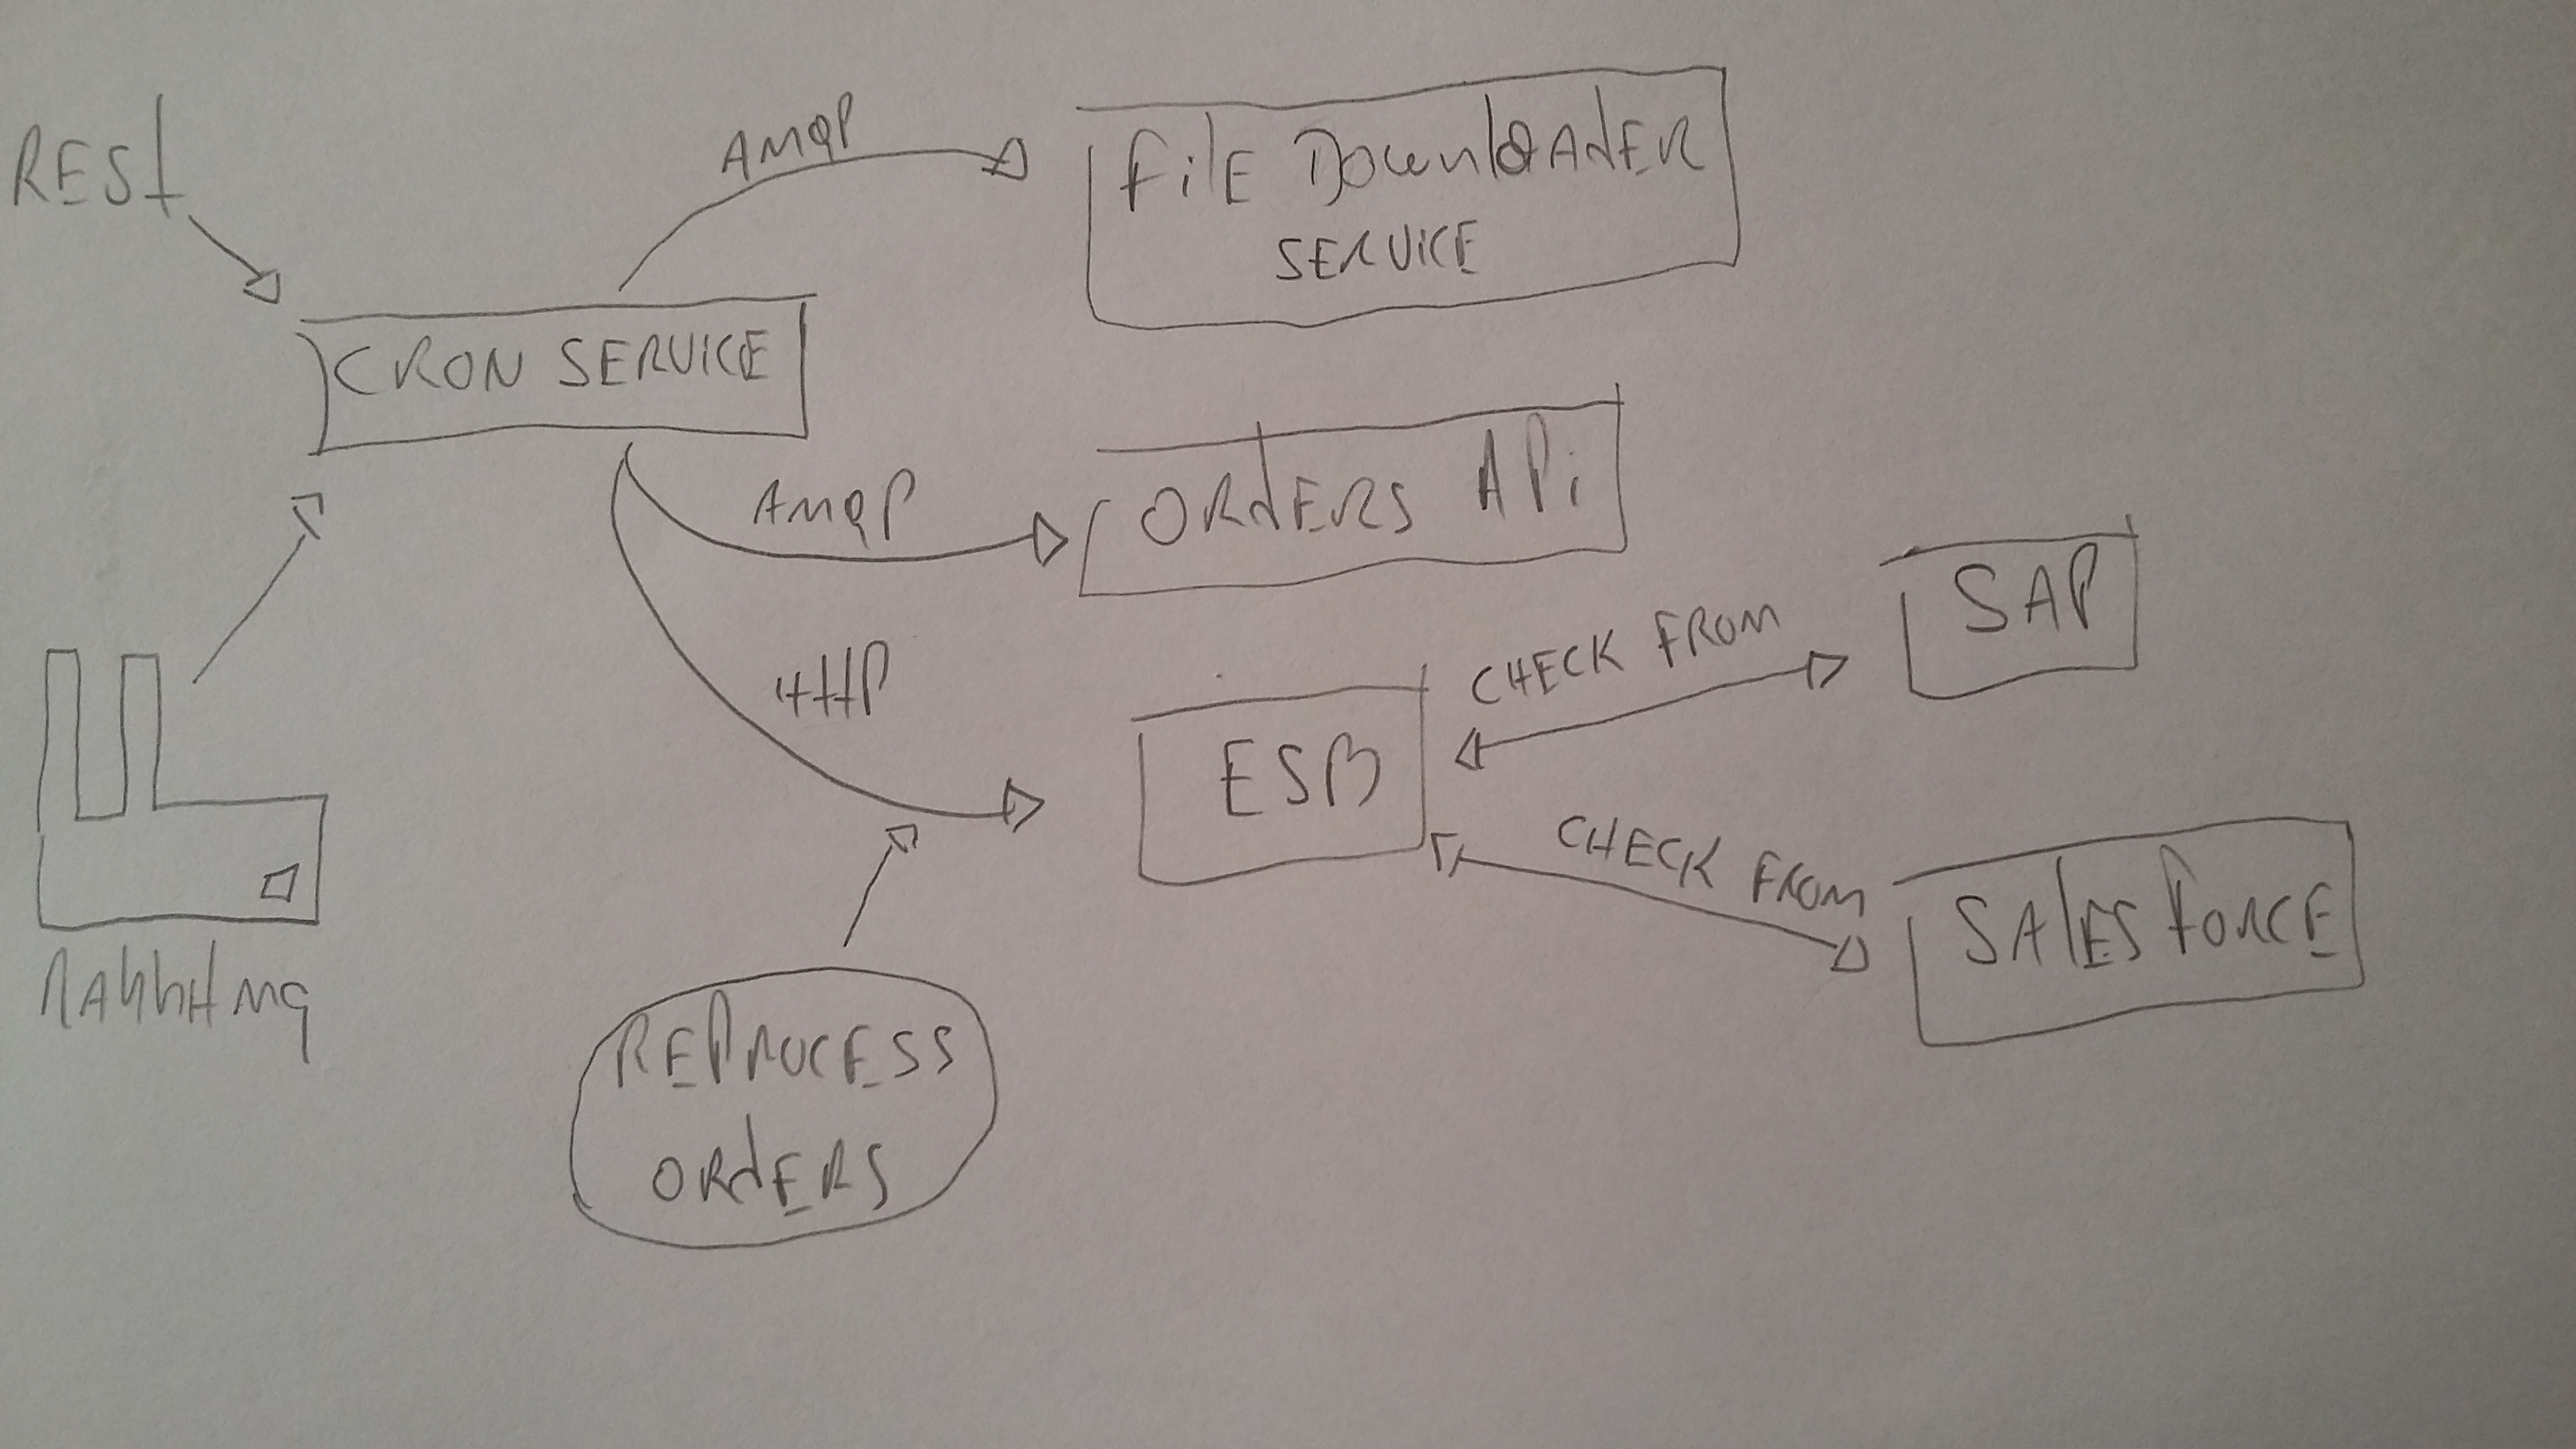 REST
AMQP
FilE DownloAdER
SERVICE
CRON SERVICE
AMQP
ORdERS APi
HttP
ESB
CHECK FROM
SAP
CHECK FROM
SAlES FORCE
RAbbitmq
REPROCESS
ORdERS